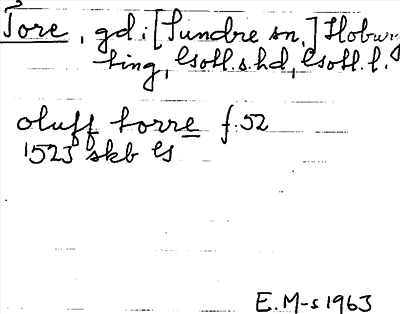 Tore, gd i [Sundre sn,] Hoburg
ting, Gotl. s. hd, Gotl. l.
oluff torre f. 52
1523 skb Gs
E. M-s 1963